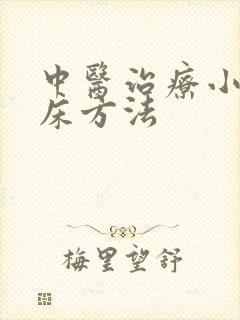 中醫治療小
床方法
梅里望舒